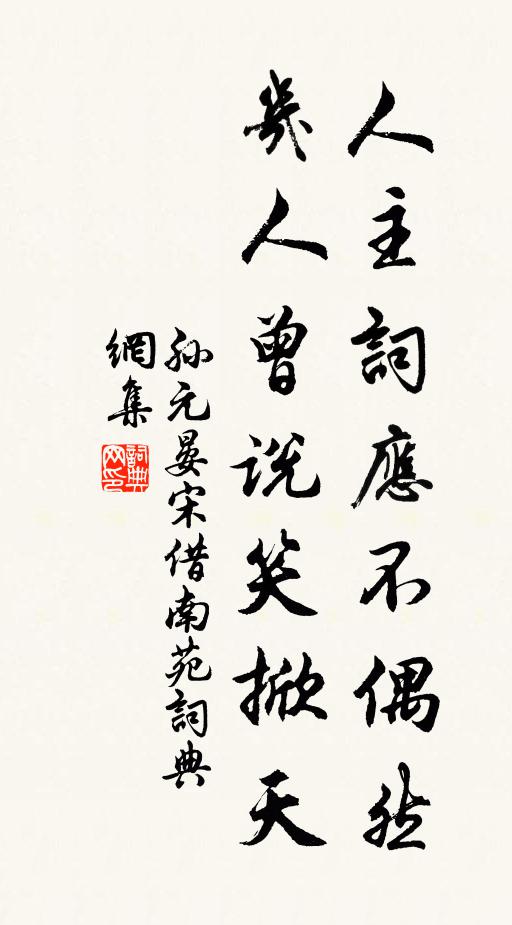 人主詞應不偶然
幾人曾說笑掀天
孫元晏宋借南苑詞典
網集
詞典
网印